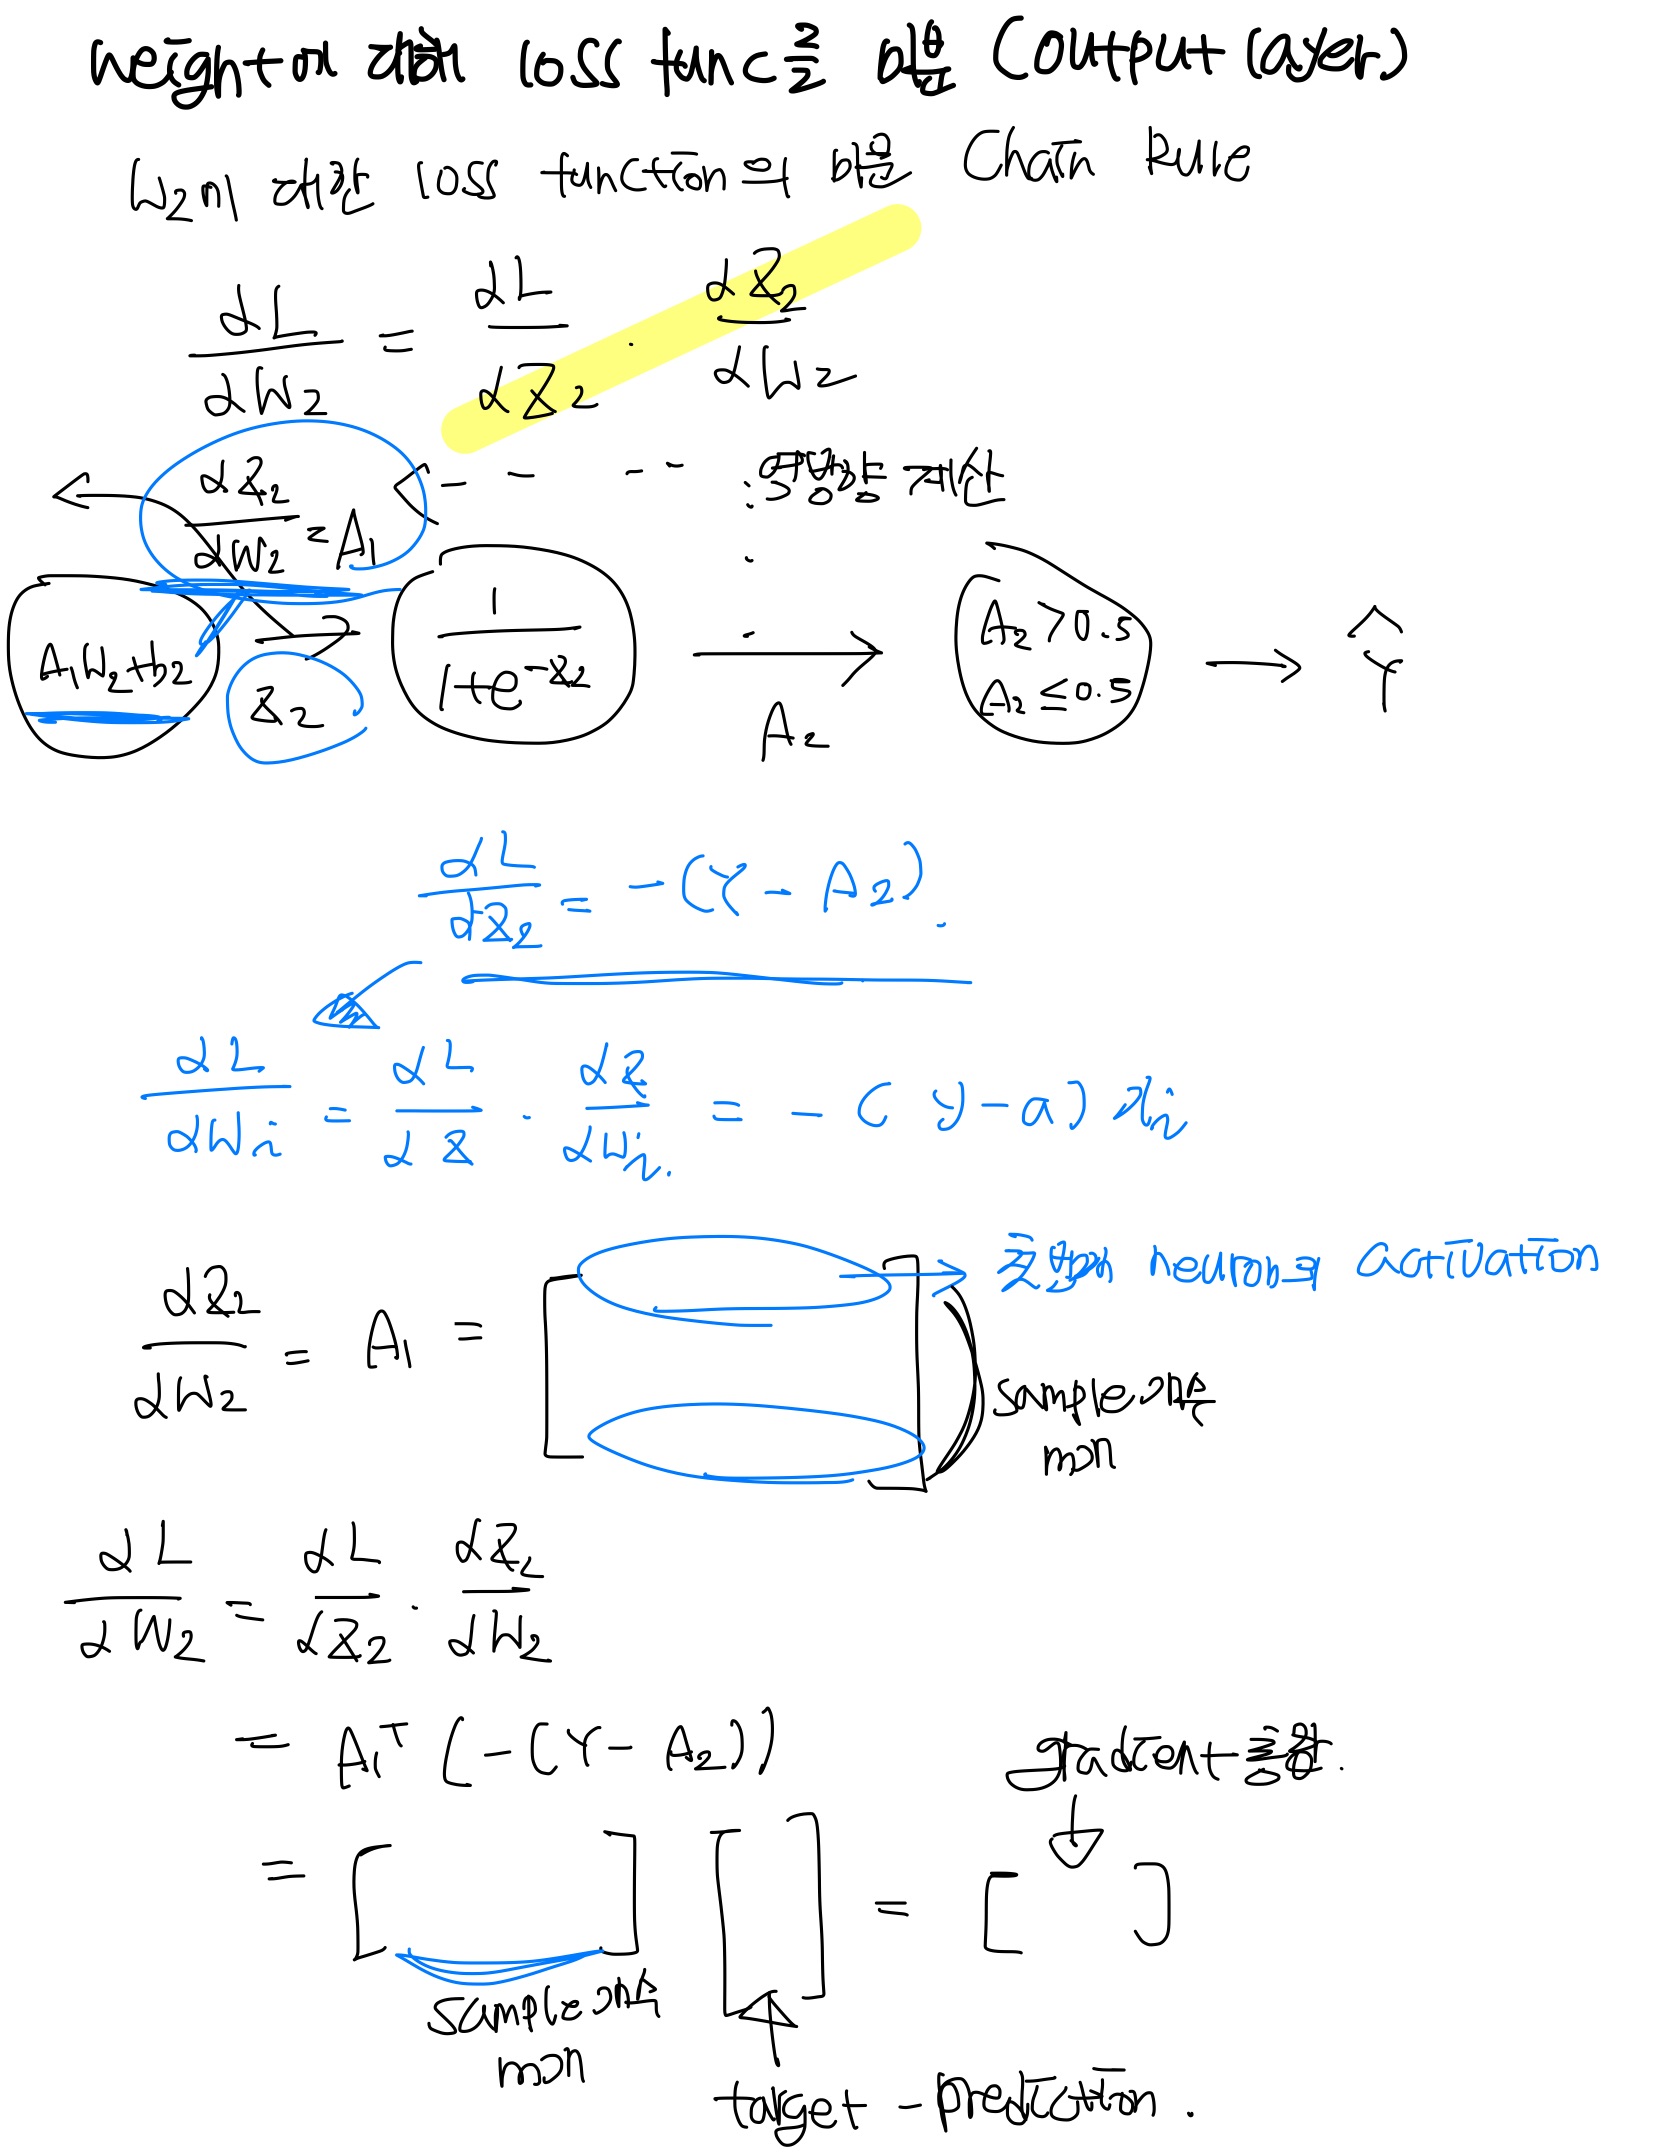 weight에 대한 loss func를 미분 (output layer)
W₂에 대한 loss function의 미분 Chain Rule
dL/dW₂ = dL/dZ₂ · dZ₂/dW₂
dZ₂/dW₂ = A₁
역방향 계산
A₁W₂+b₂
Z₂
1/(1+e^-Z₂)
A₂
A₂ > 0.5
A₂ ≤ 0.5
Ŷ
dL/dZ₂ = -(Y - A₂).
dL/dWi = dL/dZ · dZ/dWi. = -(y-a)xi
dZ₂/dW₂ = A₁ = [ ]
neuron의 activation
sample 개수
m개
dL/dW₂ = dL/dZ₂ · dZ₂/dW₂
= A₁ᵀ (-(Y - A₂))
gradient 총합.
= [ ] [ ] = [ ]
sample 개수
m개
target - prediction.